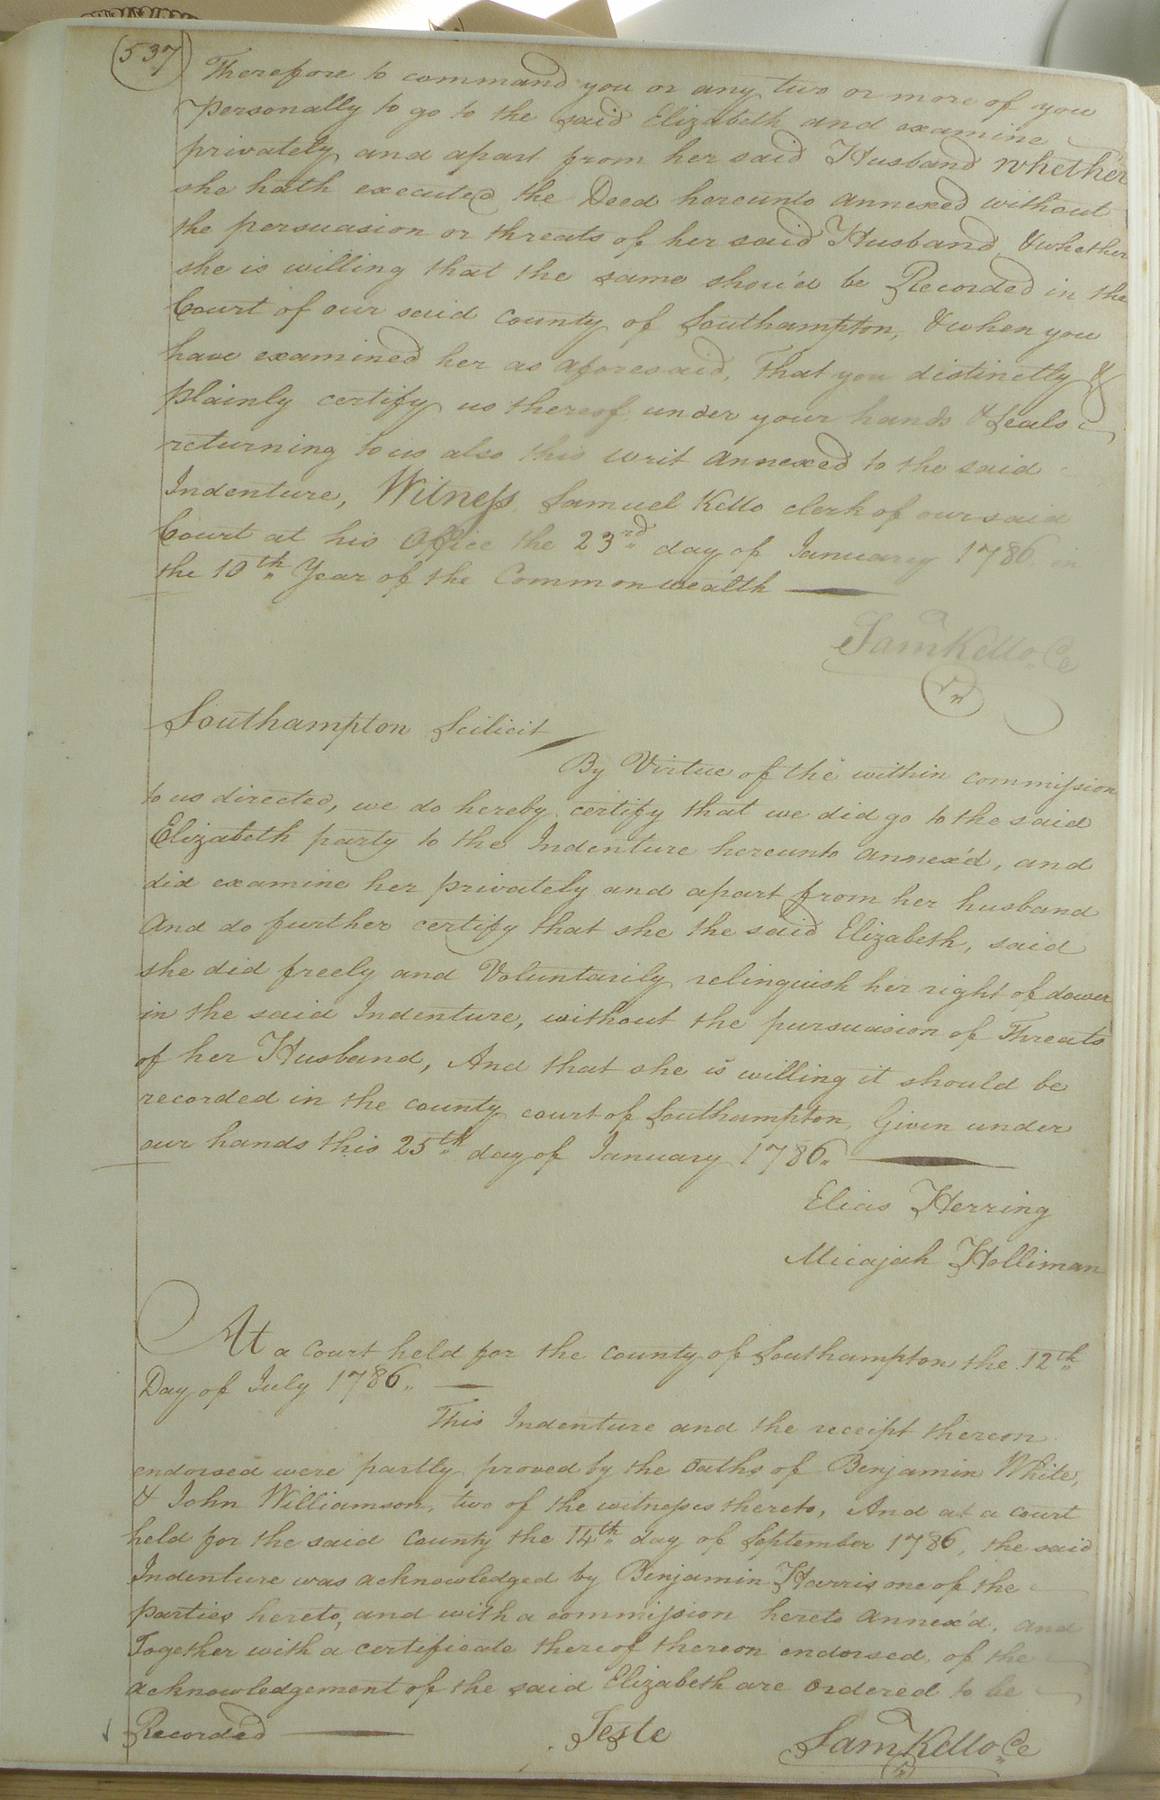 (537)
Therefore to command you or any two or more of you
personally to go to the said Elizabeth and examine
privately and apart from her said Husband whether
she hath executed the Deed hereunto annexed without
the persuasion or threats of her said Husband, & whether
she is willing that the same shou'd be Recorded in the
Court of our said county of Southampton, & when you
have examined her as aforesaid, That you distinctly &
plainly certify us thereof under your hands & Seals
returning to us also this writ annexed to the said
Indenture, Witness Samuel Kello clerk of our said
Court at his Office the 23rd day of January 1786 in
the 10th Year of the Commonwealth
Sam Kello Ce
Southampton Scilicit
By Virtue of the within commission
to us directed, we do hereby certify that we did go to the said
Elizabeth party to the Indenture hereunto annex'd, and
did examine her privately and apart from her husband
And do further certify that she the said Elizabeth, said
she did freely and Voluntarily relinquish her right of dower
in the said Indenture, without the pursuasion of Threats
of her Husband, And that she is willing it should be
recorded in the county court of Southampton, Given under
our hands this 25th day of January 1786.
Elias Herring
Micajah Holliman
At a Court held for the county of Southampton the 12th
Day of July 1786.
This Indenture and the receipt thereon
endorsed were partly proved by the Oaths of Benjamin White,
& John Williamson, two of the witnesses thereto, And at a court
held for the said County the 14th day of September 1786, the said
Indenture was acknowledged by Benjamin Harris one of the
parties hereto, and with a commission hereto annex'd, and
Together with a certificate thereof thereon endorsed, of the
acknowledgement of the said Elizabeth are Ordered to be
Recorded Teste Sam Kello Ce